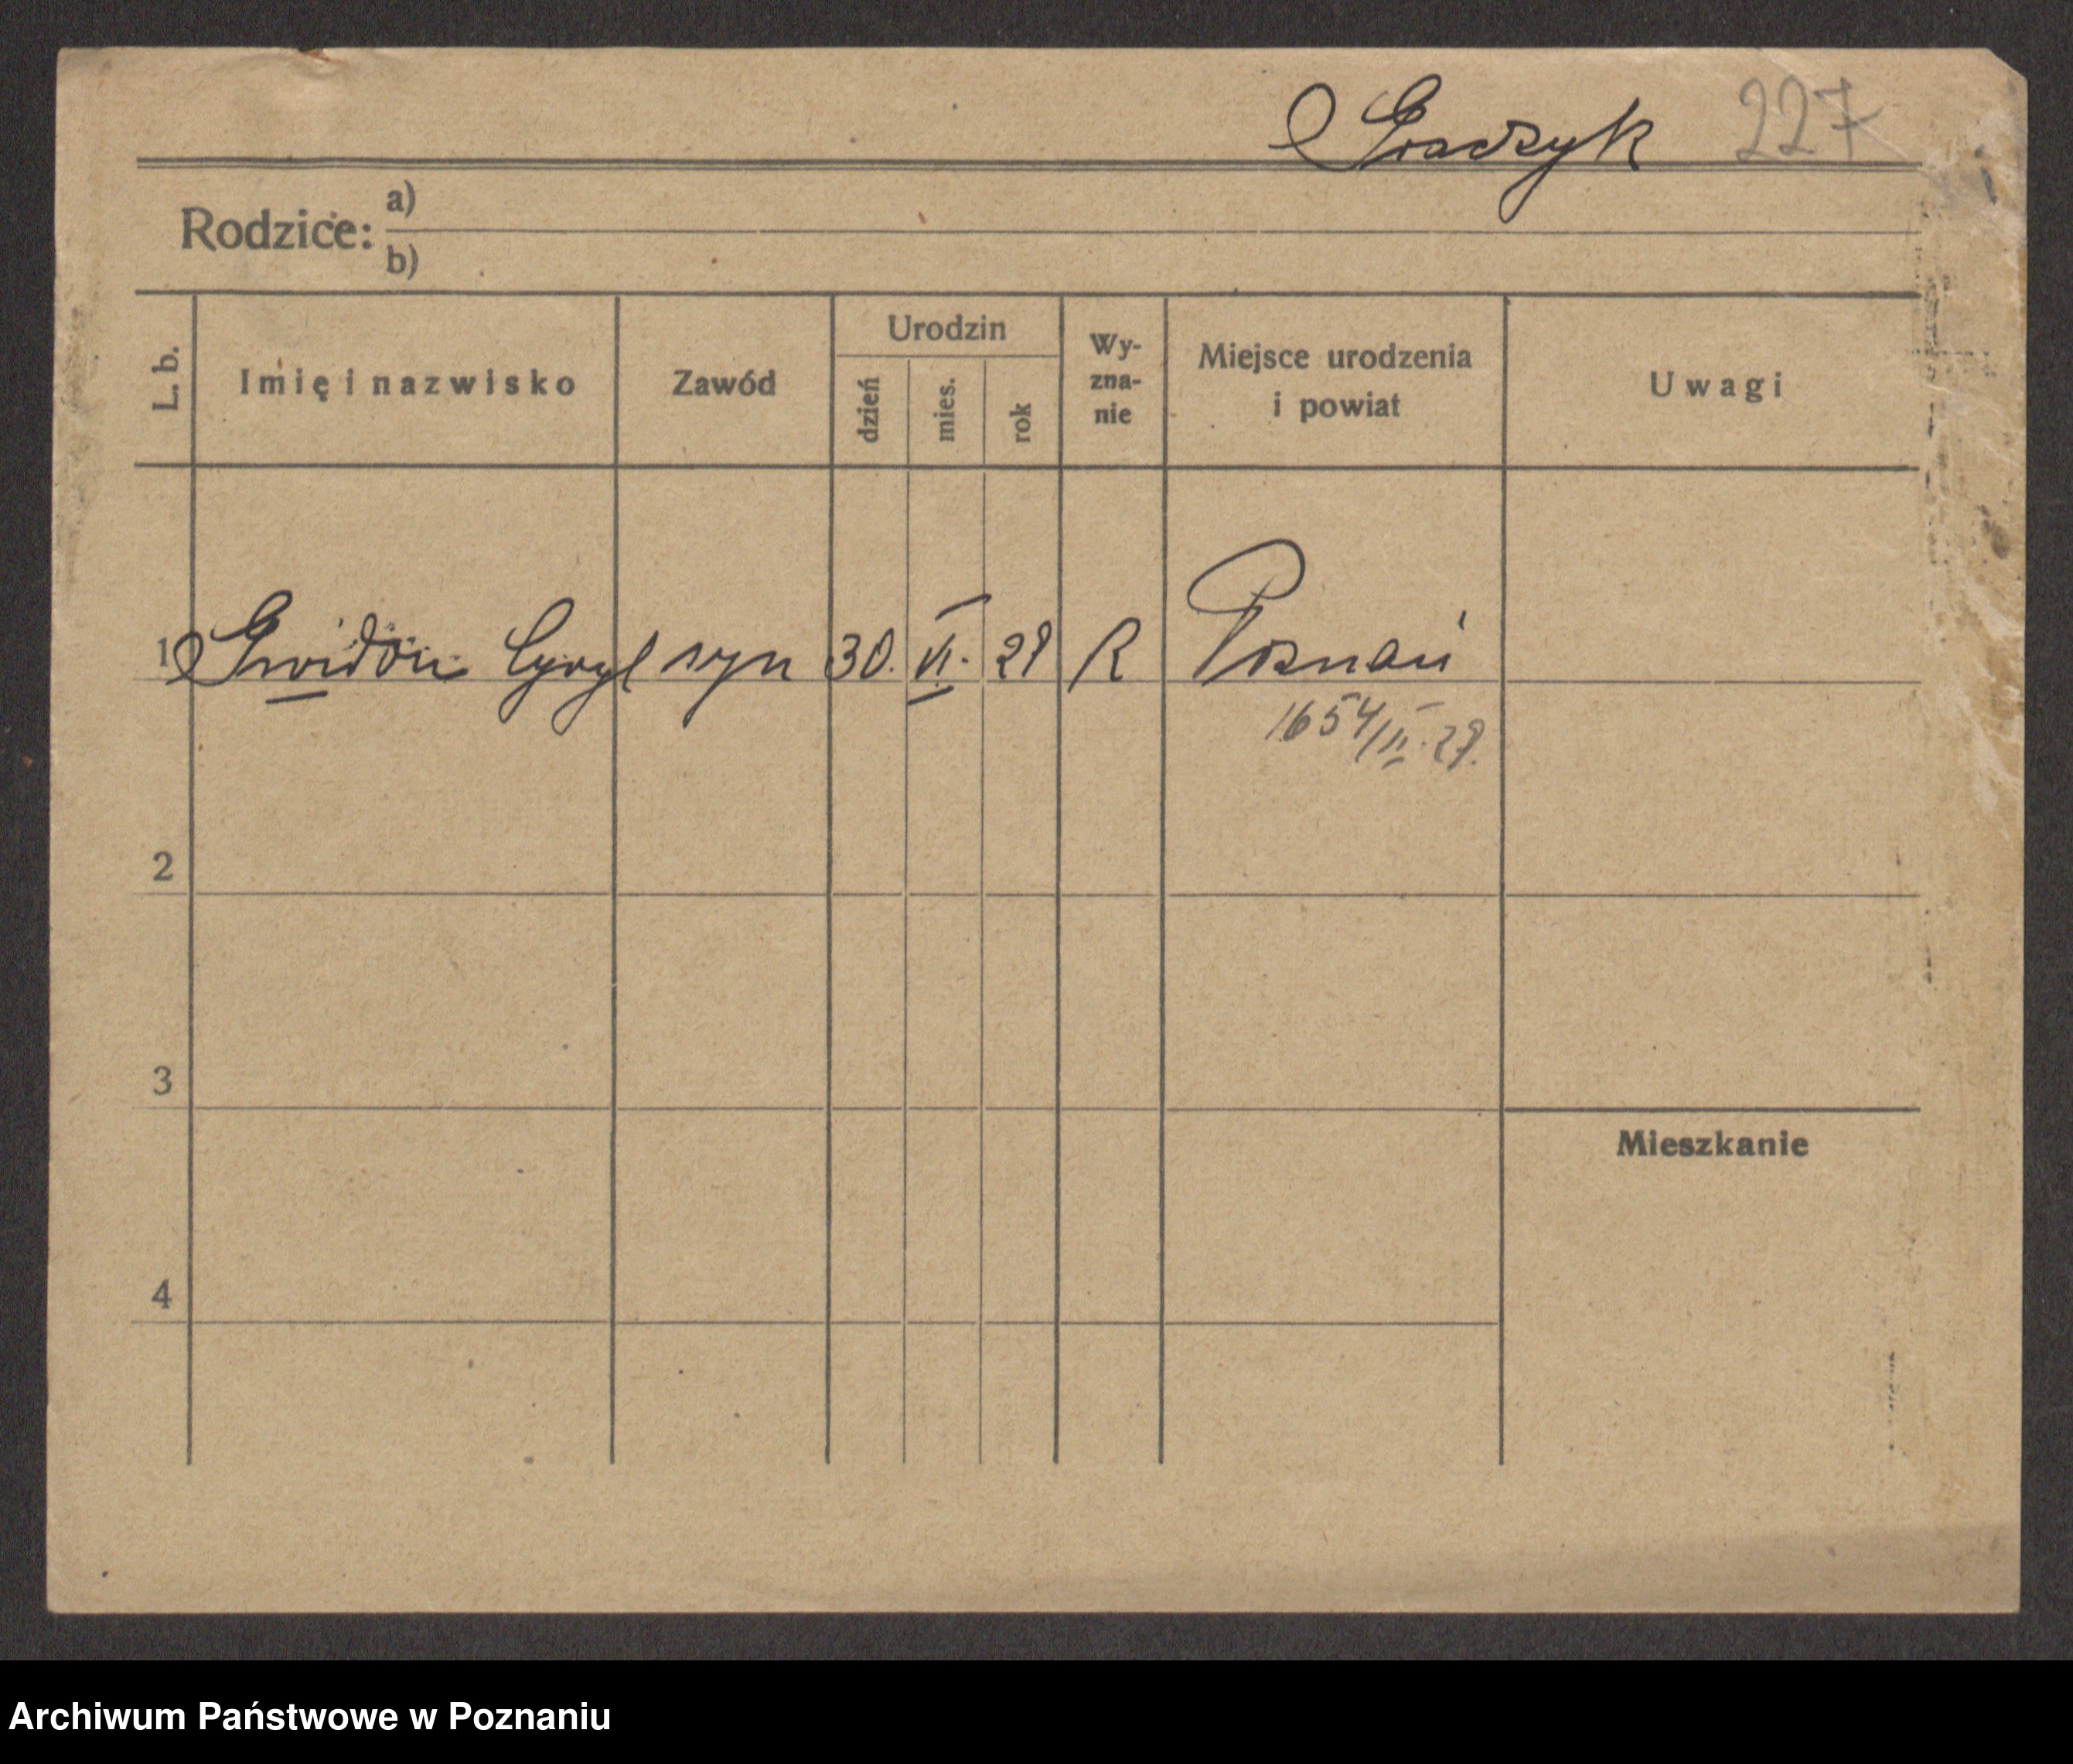 Graczyk 227
Rodzice: a)
b)
L. b.
Imię i nazwisko
Zawód
Urodzin
dzień
mies.
rok
Wy-
zna-
nie
Miejsce urodzenia
i powiat
Uwagi
1 Gwidon Cyryl syn 30. VI. 29 R Poznań
1654/II. 29.
2
3
Mieszkanie
4
Archiwum Państwowe w Poznaniu